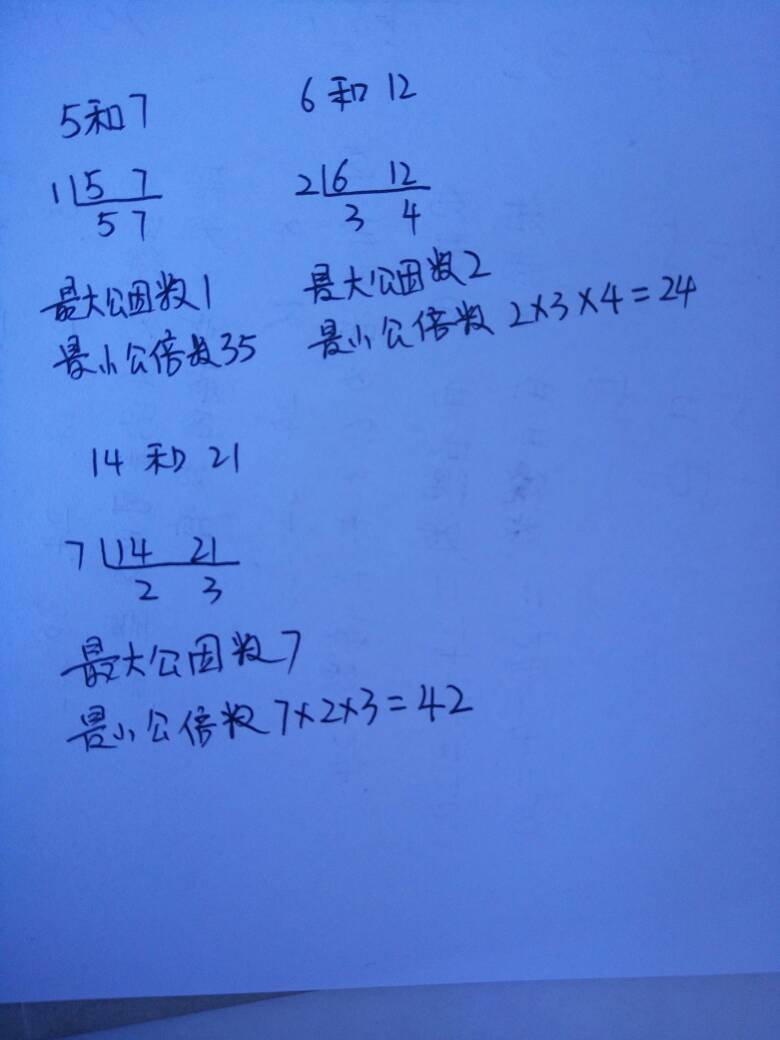 5和7
1 5 7
5 7
最大公因数1
最小公倍数35
6和12
2 6 12
3 4
最大公因数2
最小公倍数 2×3×4=24
14和21
7 14 21
2 3
最大公因数7
最小公倍数7×2×3=42